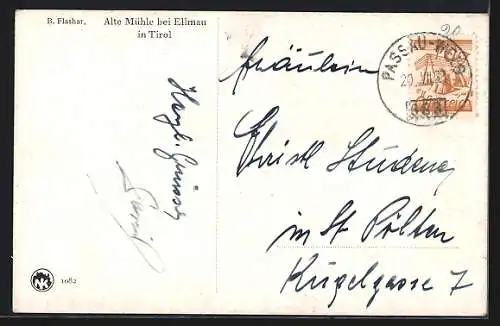 B. Flashar. Alte Mühle bei Ellmau
in Tirol
Herzl. Grüsse
Fräulein
Christl Studeny
in St. Pölten
Kugelgasse 7
PASSAU-
20. VII.
1082